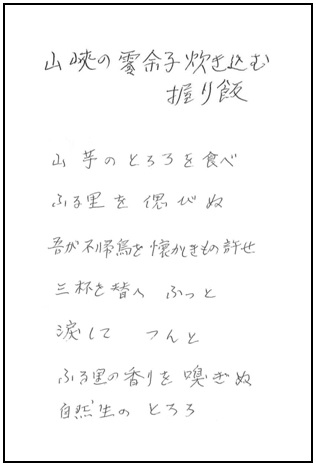 山峡の零余子炊き込む
握り飯
山芋のとろろを食べ
ふる里を偲びぬ
吾が不帰烏を懐かしきもの許せ
三杯を替へ ふっと
涙して つんと
ふる里の香りを嗅ぎぬ
自然生の とろろ